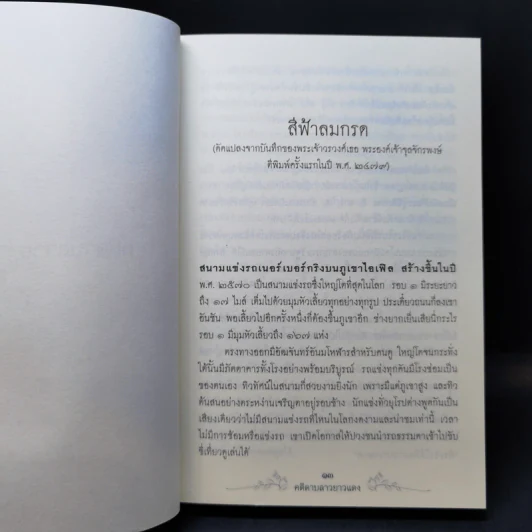 สีฟ้าลมกรด
(ดัดแปลงจากบันทึกของพระเจ้าวรวงศ์เธอ พระองค์เจ้าจุลจักรพงษ์
ตีพิมพ์ครั้งแรกในปี พ.ศ. ๒๔๗๙)
สนามแข่งรถเนอร์เบอร์กริงบนภูเขาไอเฟิล สร้างขึ้นในปี
พ.ศ. ๒๔๗๐ เป็นสนามแข่งรถซึ่งใหญ่โตที่สุดในโลก รอบ ๑ มีระยะยาว
ถึง ๑๗ ไมล์ เต็มไปด้วยมุมหัวเลี้ยวทุกอย่างทุกรูป ประเดี๋ยวถนนก็ลงเขา
ชันชัน พอเลี้ยวไปอีกครั้งหนึ่งก็ต้องขึ้นภูเขาอีก ช่างยากเย็นเสียนี่กระไร
รอบ ๑ มีมุมหัวเลี้ยวถึง ๑๖๗ แห่ง
ตรงทางออกมีอัฒจันทร์อันมโหฬารสำหรับคนดู ใหญ่โตจนกระทั่ง
ใต้นั้นมีภัตตาคารทั้งโรงอย่างพร้อมบริบูรณ์ รถแข่งทุกคันมีโรงซ่อมเป็น
ของตนเอง ทิวทัศน์ในสนามก็สวยงามยิ่งนัก เพราะมีแต่ภูเขาสูง และทิว
ต้นสนอย่างตระหง่านเจริญตาอยู่รอบข้าง นักแข่งทั่วยุโรปต่างพูดกันเป็น
เสียงเดียวว่าไม่มีสนามแข่งรถที่ไหนในโลกงดงามและน่าชมเท่านี้ เวลา
ไม่มีการซ้อมหรือแข่งรถ เขาเปิดโอกาสให้ปวงชนนำรถธรรมดาเข้าไปขับ
ขี่เที่ยวดูเล่นได้
๑๓
คดีดาบลาวยาวแดง